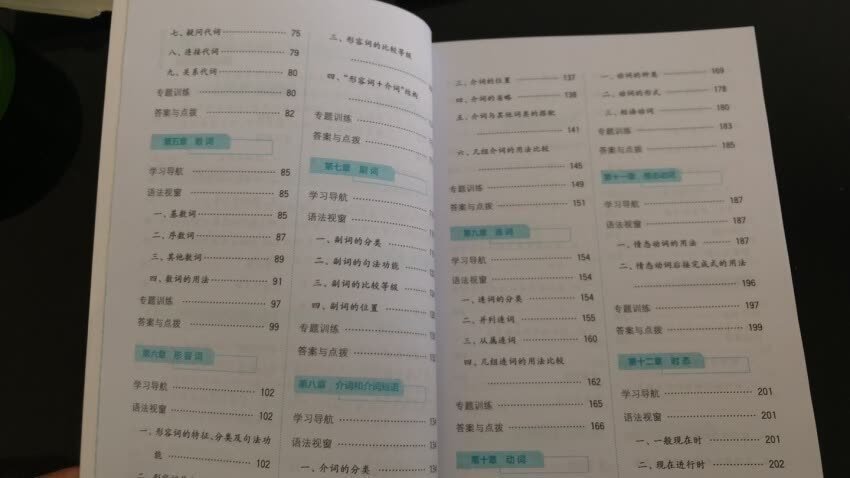 七、疑问代词 ………… 75
八、连接代词 ………… 79
九、关系代词 ………… 80
专题训练 ………… 80
答案与点拨 ………… 82
第五章 数词
学习导航 ………… 85
语法视窗 ………… 85
一、基数词 ………… 85
二、序数词 ………… 87
三、其他数词 ………… 89
四、数词的用法 ………… 91
专题训练 ………… 97
答案与点拨 ………… 99
第六章 形容词
学习导航 ………… 102
语法视窗 ………… 102
一、形容词的特征、分类及句法功
能 ………… 102
三、形容词的比较等级
…………
四、“形容词+介词”结构
…………
专题训练 …………
答案与点拨 …………
第七章 副词
学习导航 …………
语法视窗 …………
一、副词的分类 …………
二、副词的句法功能 …………
三、副词的比较等级 …………
四、副词的位置 …………
专题训练 …………
答案与点拨 …………
第八章 介词和介词短语
学习导航 …………
语法视窗 …………
一、介词的分类 …………
三、介词的位置 ………… 137
四、介词的省略 ………… 138
五、介词与其他词类的搭配
………… 141
六、几组介词的用法比较
………… 145
专题训练 ………… 149
答案与点拨 ………… 151
第九章 连词
学习导航 ………… 154
语法视窗 ………… 154
一、连词的分类 ………… 154
二、并列连词 ………… 155
三、从属连词 ………… 160
四、几组连词的用法比较
………… 162
专题训练 ………… 165
答案与点拨 ………… 166
第十章 动词
一、动词的种类 ………… 169
二、动词的形式 ………… 178
三、短语动词 ………… 180
专题训练 ………… 183
答案与点拨 ………… 185
第十一章 情态动词
学习导航 ………… 187
语法视窗 ………… 187
一、情态动词的用法 ………… 187
二、情态动词后接完成式的用法
………… 196
专题训练 ………… 197
答案与点拨 ………… 199
第十二章 时态
学习导航 ………… 201
语法视窗 ………… 201
一、一般现在时 ………… 201
二、现在进行时 ………… 202